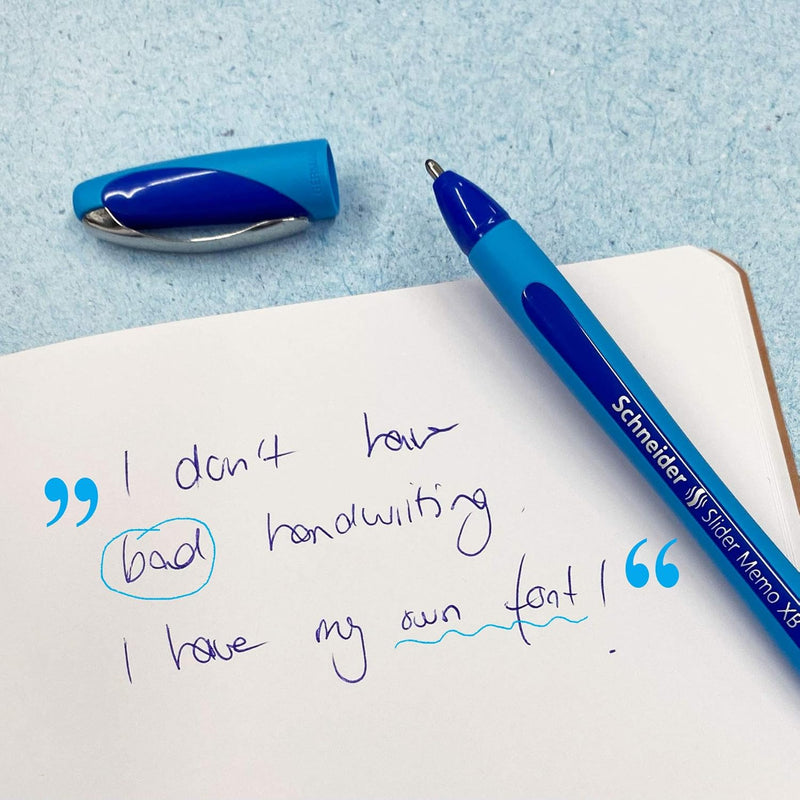 GERMANY
Schneider Slider Memo XB
”I don't have
bad handwriting.
I have my own font!“